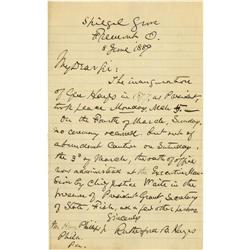 Spiegel Grove
Fremont O.
8 June 1889
My Dear Sir:
The inauguration
of Gen Hayes in 1877, as President,
took place Monday, Mch 5.
On the Fourth of March, Sunday,
no ceremony occurred. But out of
abundant caution on Saturday,
the 3d of March, the oath of office
was administered at the Executive Man-
sion by Chief Justice Waite in the
presence of President Grant, Secretary
of State Fish, and a few other persons.
Sincerely
Rutherford B. Hayes
Mr Henry Phillips Jr
Phila
Pa.